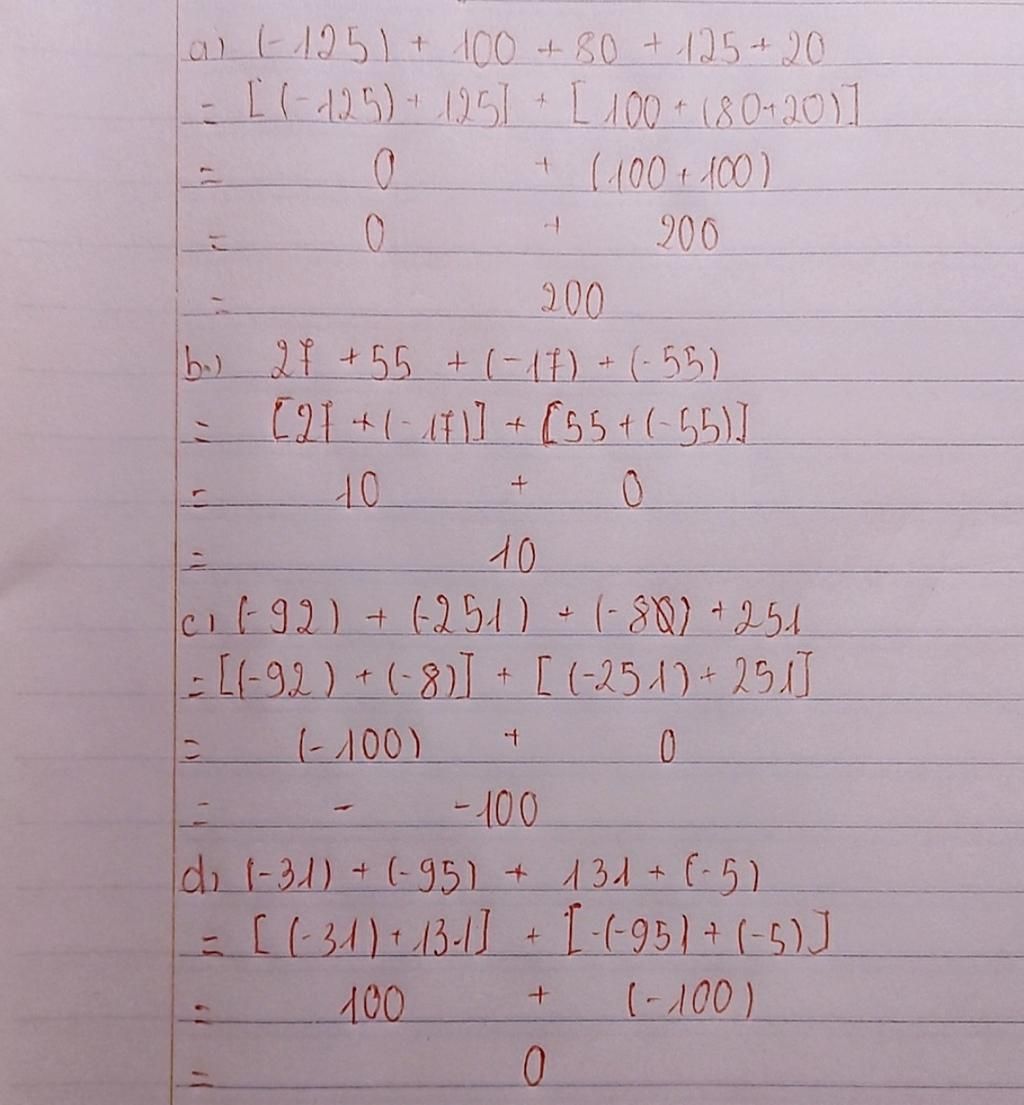 a) (-125) + 100 + 80 + 125 + 20
= [(-125) + 125] + [100 + (80+20)]
= 0 + (100 + 100)
= 0 + 200
= 200
b) 27 + 55 + (-17) + (-55)
= [27 + (-17)] + [55 + (-55)]
= 10 + 0
= 10
c) (-92) + (-251) + (-8) + 251
= [(-92) + (-8)] + [(-251) + 251]
= (-100) + 0
= - -100
d) (-31) + (-95) + 131 + (-5)
= [(-31) + 131] + [-(-95) + (-5)]
= 100 + (-100)
= 0